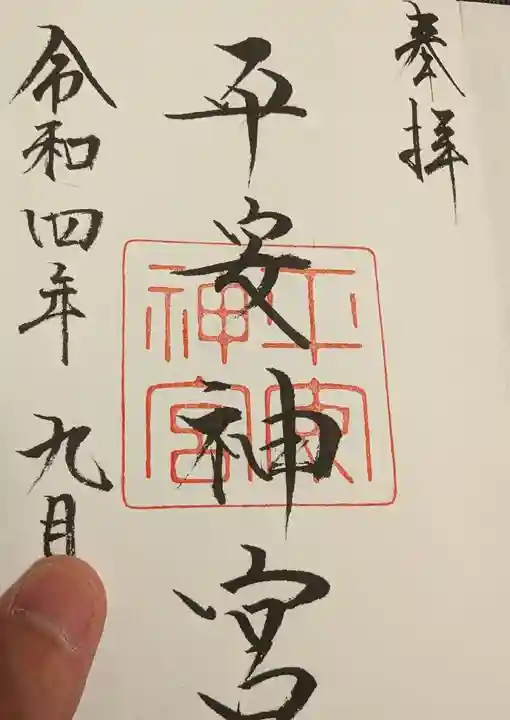 奉拝
平安神宮
平安神宮
令和四年九月